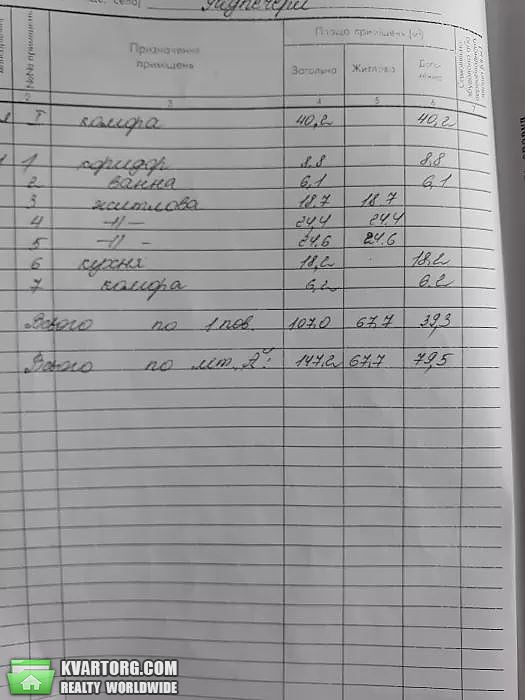 Площа приміщень (м²)
№№ приміщень
Призначення приміщень
Загальна Житлова Допоміжна
2 3 4 5 6 7
I комора 40,2 40,2
1 коридор 8,8 8,8
2 ванна 6,1 6,1
3 житлова 18.7 18.7
4 -//- 24,4 24.4
5 -//- 24.6 24.6
6 кухня 18,2 18,2
7 комора 6,2 6.2
Всього по 1 пов. 107.0 67.7 39,3
Всього по літ. 147,2 67,7 79,5
KVARTORG.COM
REALTY WORLDWIDE